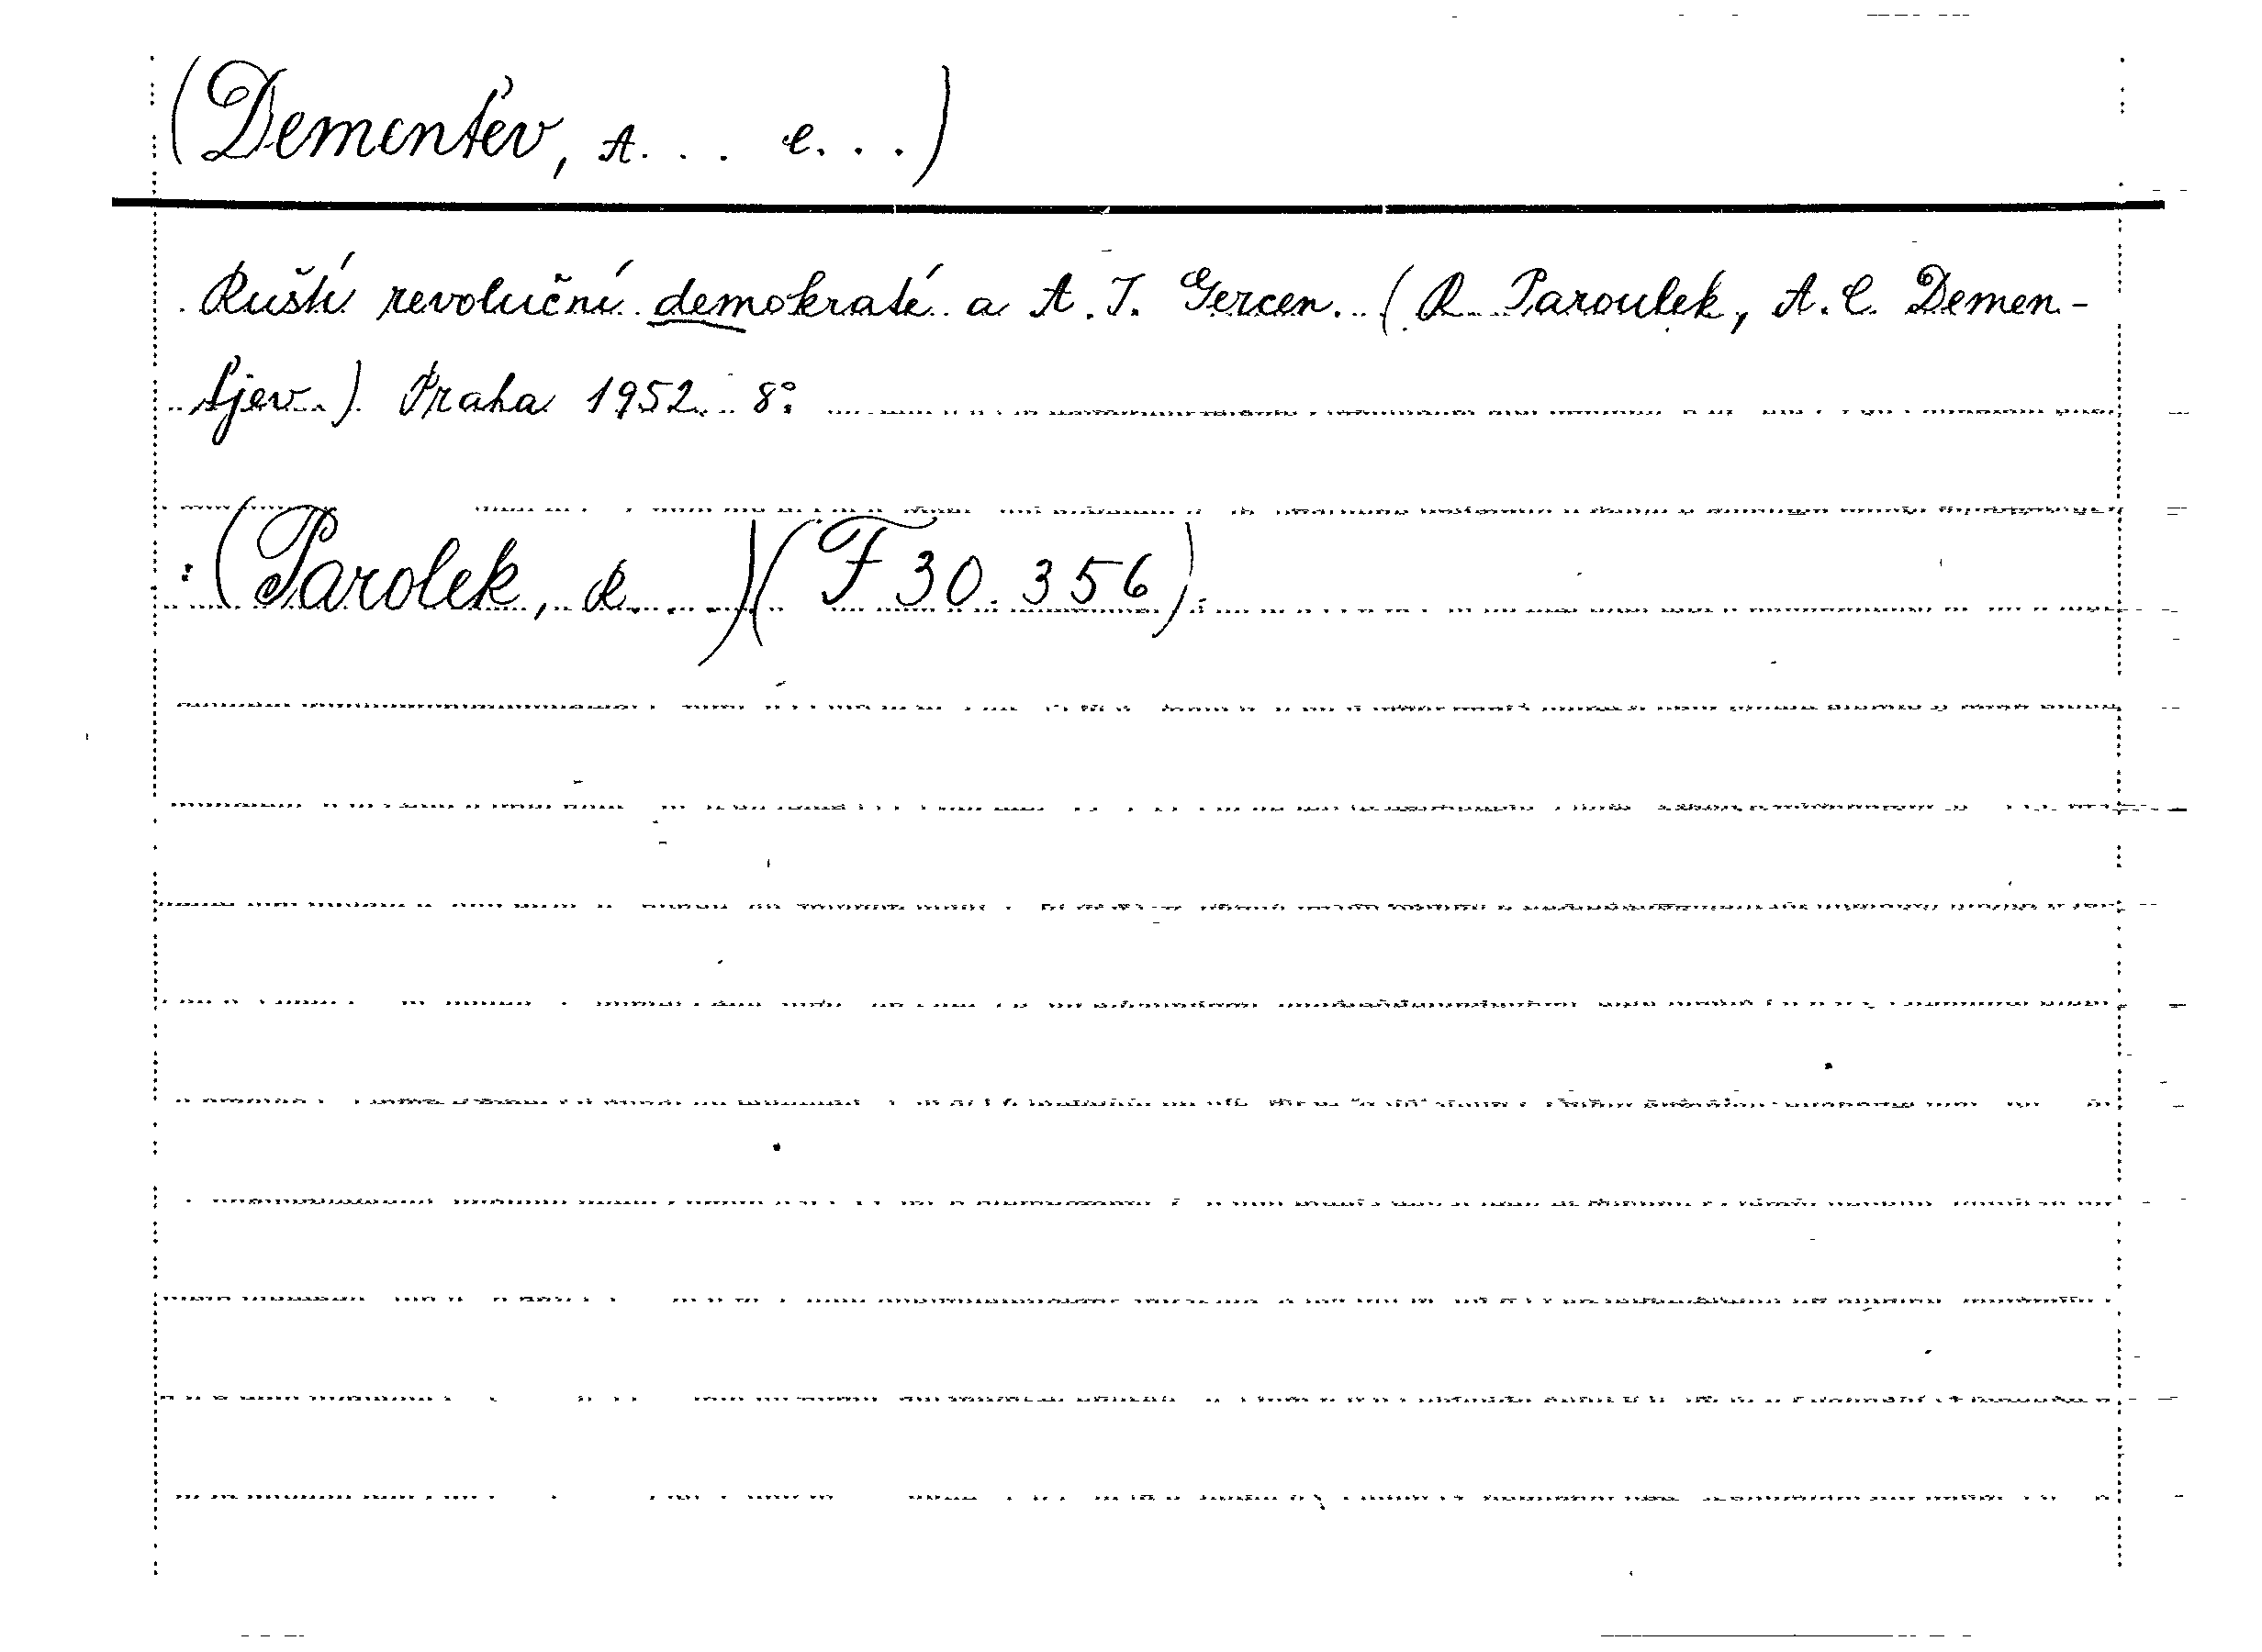 (Dementěv, A... C...)
Ruští revoluční demokraté a A. J. Gercen. (R. Paroulek, A. C. Demen-
tjev.) Praha 1952. 8°.
(Parolek, R...)(F 30.356)